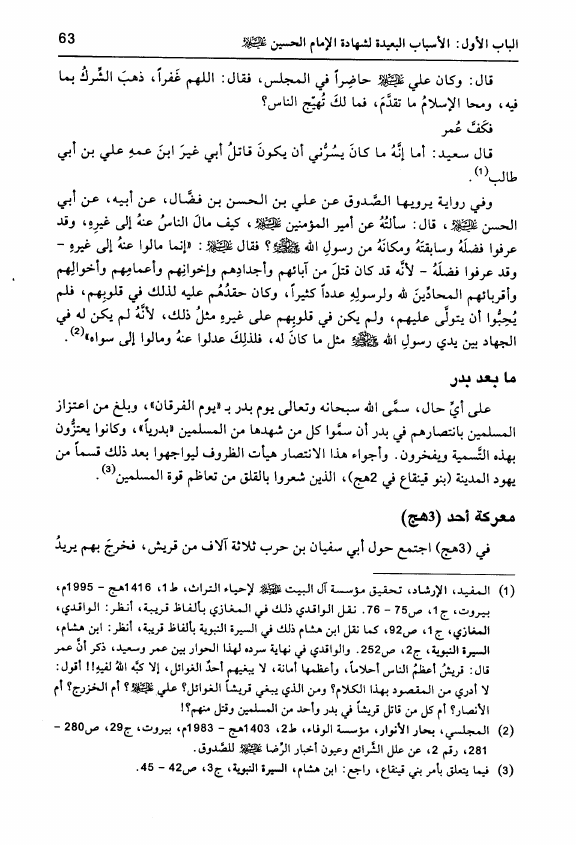 الباب الأول: الأسباب البعيدة لشهادة الإمام الحسين عليه السلام 63
قال: وكان علي عليه السلام حاضِراً في المجلس، فقال: اللهم غَفراً، ذهبَ الشِّركُ بما
فيه، ومحا الإسلامُ ما تقدَّمَ، فما لكَ تُهيّج الناس؟
فكَفَّ عُمر
قال سعيد: أما إنَّهُ ما كانَ يسُرُّني أن يكونَ قاتلُ أبي غيرَ ابنَ عمهِ علي بن أبي
طالب(1).
وفي رواية يرويها الصَّدوق عن علي بن الحسن بن فضَّال، عن أبيه، عن أبي
الحسن عليه السلام، قال: سألتُهُ عن أمير المؤمنين عليه السلام، كيف مالَ الناسُ عنهُ إلى غيرِهِ، وقد
عرفوا فضلَهُ وسابقتَهُ ومكانَهُ من رسولِ الله ﷺ؟ فقال عليه السلام: «إنما مالوا عنهُ إلى غيرهِ –
وقد عرفوا فضلَهُ – لأنَّه قد كان قتلَ من آبائهم وأجدادِهم وإخوانِهم وأعمامِهم وأخوالِهم
وأقربائهم المحادِّينَ لله ولرسولِهِ عدداً كثيراً، وكان حقدُهُم عليه لذلك في قلوبِهم، فلم
يُحِبُّوا أن يتولَّى عليهم، ولم يكن في قلوبِهم على غيرهِ مثلُ ذلك، لأنَّهُ لم يكن له في
الجهاد بين يدي رسولِ الله ﷺ مثل ما كانَ له، فلذلِكَ عدلوا عنهُ ومالوا إلى سواه»(2).
ما بعد بدر
على أيِّ حال، سمَّى الله سبحانه وتعالى يوم بدر بـ «يوم الفرقان»، وبلغ من اعتزاز
المسلمين بانتصارهم في بدر أن سمَّوا كل من شهدها من المسلمين «بدرياً»، وكانوا يعتزُّون
بهذه التَّسمية ويفخرون. وأجواء هذا الانتصار هيأت الظروف ليواجهوا بعد ذلك قسماً من
يهود المدينة (بنو قينقاع في 2هج)، الذين شعروا بالقلق من تعاظم قوة المسلمين(3).
معركة أحد (3هج)
في (3هج) اجتمع حول أبي سفيان بن حرب ثلاثة آلاف من قريش، فخرجَ بهم يريدُ
(1) المفيد، الإرشاد، تحقيق مؤسسة آل البيت عليهم السلام لإحياء التراث، ط1، 1416هج – 1995م،
بيروت، ج1، ص75 – 76. نقل الواقدي ذلك في المغازي بألفاظ قريبة، أنظر: الواقدي،
المغازي، ج1، ص92، كما نقل ابن هشام ذلك في السيرة النبوية بألفاظ قريبة، أنظر: ابن هشام،
السيرة النبوية، ج2، ص252. والواقدي في نهاية سرده لهذا الحوار بين عمر وسعيد، ذكر أنَّ عمر
قال: قريشٌ أعظمُ الناس أحلاماً، وأعظمها أمانة، لا يبغيهم أحدٌ الغوائل، إلا كبَّه اللهُ لفيهِ!! أقول:
لا أدري من المقصود بهذا الكلام؟ ومن الذي يبغي قريشاً الغوائل؟ علي عليه السلام؟ أم الخزرج؟ أم
الأنصار؟ أم كل من قاتل قريشاً في بدر وأحد من المسلمين وقتل منهم؟!
(2) المجلسي، بحار الأنوار، مؤسسة الوفاء، ط2، 1403هج – 1983م، بيروت، ج29، ص280 –
281، رقم 2، عن علل الشَّرائع وعيون أخبار الرِّضا عليه السلام للصَّدوق.
(3) فيما يتعلق بأمر بني قينقاع، راجع: ابن هشام، السيرة النبوية، ج3، ص42 – 45.